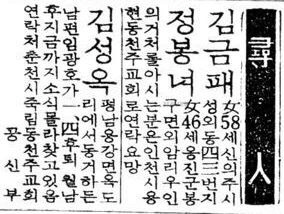 尋人
김금패
女58세신의주시
성외동四三번지
정봉녀
女46세옹진군봉
구면외암리우인
의거처를아시는분은인천시용
현동천주교회로연락요망
김성옥
평남용강면옥도
리에서동거하든
남편임광호가一、四후퇴월남
후지금까지소식몰라찾고있읍
연락처춘천시죽림동천주교회
공신부